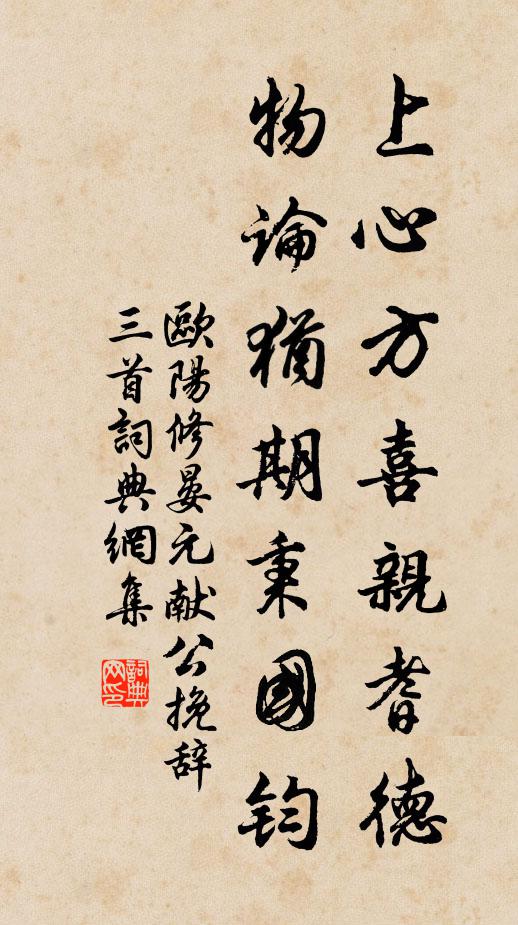 上心方喜親耆德
物論猶期秉國鈞
歐陽修晏元献公挽辞
三首詞典網集
詞典
网印